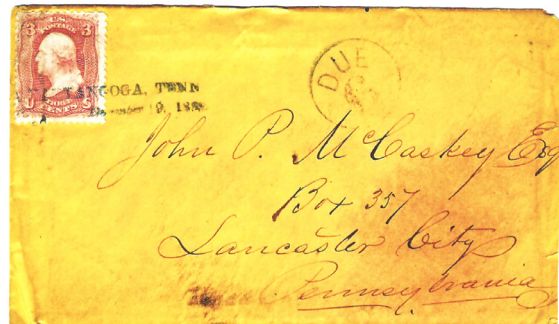 U.S.
POSTAGE
3 3
THREE
U CENTS S
TANOOGA, TENN
9, 186
DUE
John P. McCaskey Esq
Box 357
Lancaster City
Pennsylvania